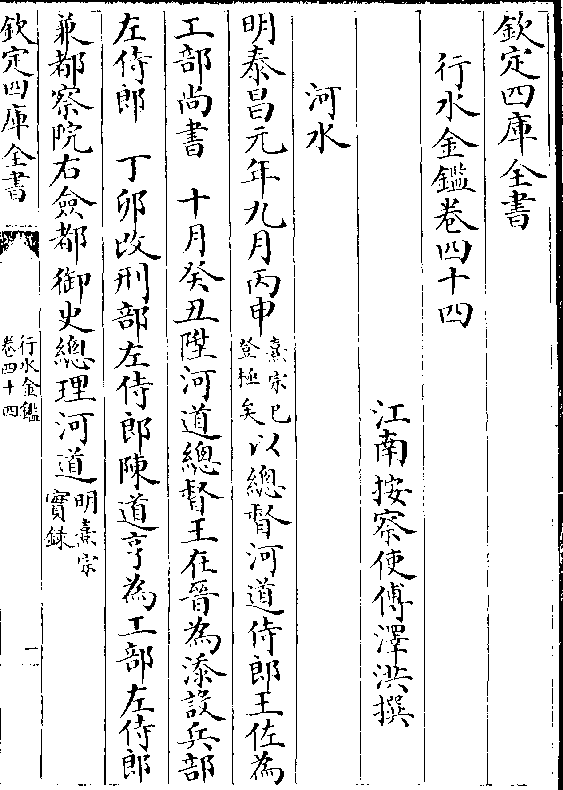 欽定四庫全書
行水金鑑卷四十四
江南按察使傅澤洪撰
河水
明泰昌元年九月丙申熹宗已登極矣以總督河道侍郎王佐為
工部尚書 十月癸丑陞河道總督王在晉為添設兵部
左侍郎 丁卯改刑部左侍郎陳道亨為工部左侍郎
兼都察院右僉都御史總理河道明熹宗實録
欽定四庫全書
行水金鑑
卷四十四
一